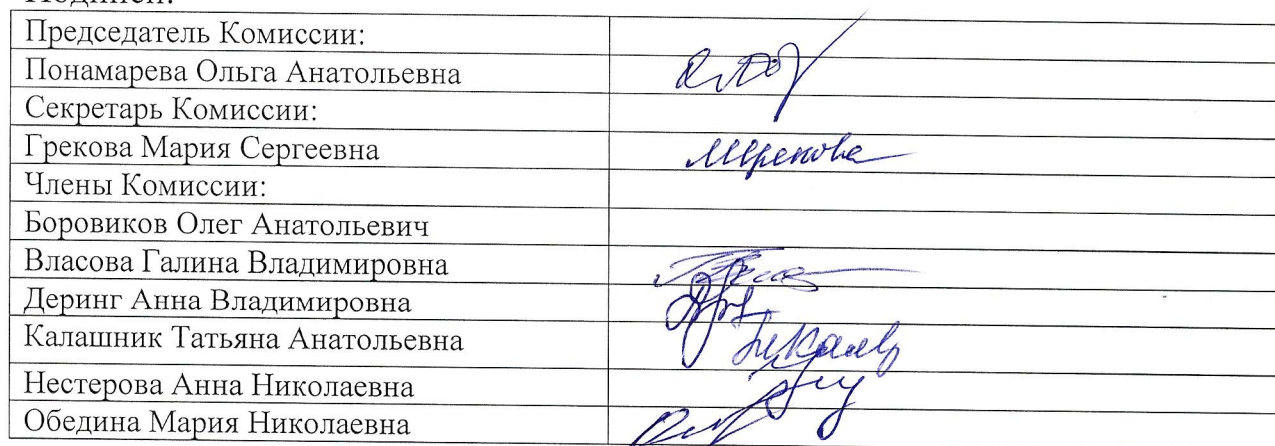 Подписи:
Председатель Комиссии:
Понамарева Ольга Анатольевна
Секретарь Комиссии:
Грекова Мария Сергеевна
МГрекова
Члены Комиссии:
Боровиков Олег Анатольевич
Власова Галина Владимировна
Деринг Анна Владимировна
Калашник Татьяна Анатольевна
Нестерова Анна Николаевна
Обедина Мария Николаевна